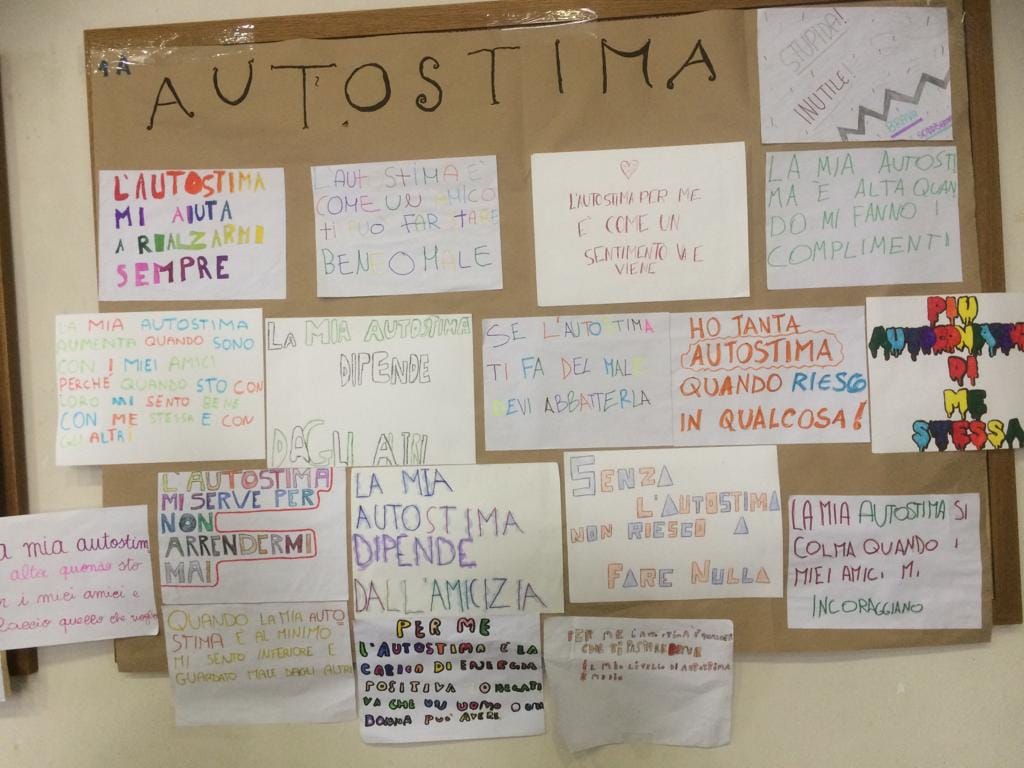 1A
AUTOSTIMA
STUPIDA!
INUTILE!
BRAVA
L'AUTOSTIMA
MI AIUTA
A RIALZARMI
SEMPRE
L'AUTOSTIMA È
COME UN AMICO
TI PUÒ FAR STARE
BENE O MALE
L'AUTOSTIMA PER ME
È COME UN
SENTIMENTO VA E
VIENE
LA MIA AUTOSTI
MA È ALTA QUAN
DO MI FANNO I
COMPLIMENTI
LA MIA AUTOSTIMA
AUMENTA QUANDO SONO
CON I MIEI AMICI
PERCHÉ QUANDO STO CON
LORO MI SENTO BENE
CON ME STESSA E CON
GLI ALTRI
LA MIA AUTOSTIMA
DIPENDE
DAGLI
SE L'AUTOSTIMA
TI FA DEL MALE
DEVI ABBATTERLA
HO TANTA
AUTOSTIMA
QUANDO RIESCO
IN QUALCOSA!
PIÙ
DI
ME
STESSA
a mia autostim
alta quando sto
i miei amici e
faccio quello che voglio
L'AUTOSTIMA
MI SERVE PER
NON
ARRENDERMI
MAI
LA MIA
AUTOSTIMA
DIPENDE
DALL'AMICIZIA
SENZA
L'AUTOSTIMA
NON RIESCO A
FARE NULLA
LA MIA AUTOSTIMA SI
COLMA QUANDO I
MIEI AMICI MI
INCORAGGIANO
QUANDO LA MIA AUTO
STIMA È AL MINIMO
MI SENTO INFERIORE E
GUARDATO MALE DAGLI ALTRI
PER ME
L'AUTOSTIMA È LA
CARICA DI ENERGIA
POSITIVA O NEGATI
VA CHE UN UOMO O UN
DONNA PUÒ AVERE
PER ME
CHE TI
IL MIO LIVELLO DI AUTOSTIMA
È MEDIO